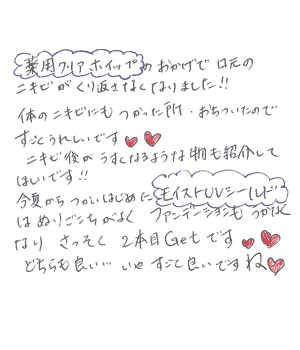 薬用クリアホイップのおかげで口元の
ニキビがくり返さなくなりました!!
体のニキビにもつかった所、おちついたので
すごくうれしいです
ニキビ後がうすくなるような物も紹介して
ほしいです!!
今夏からつかいはじめたモイストUVシールド
はぬりごこちがよくファンデーションもうかなく
なり さっそく 2本目Getです
どちらも良い… いや すごく良いですね